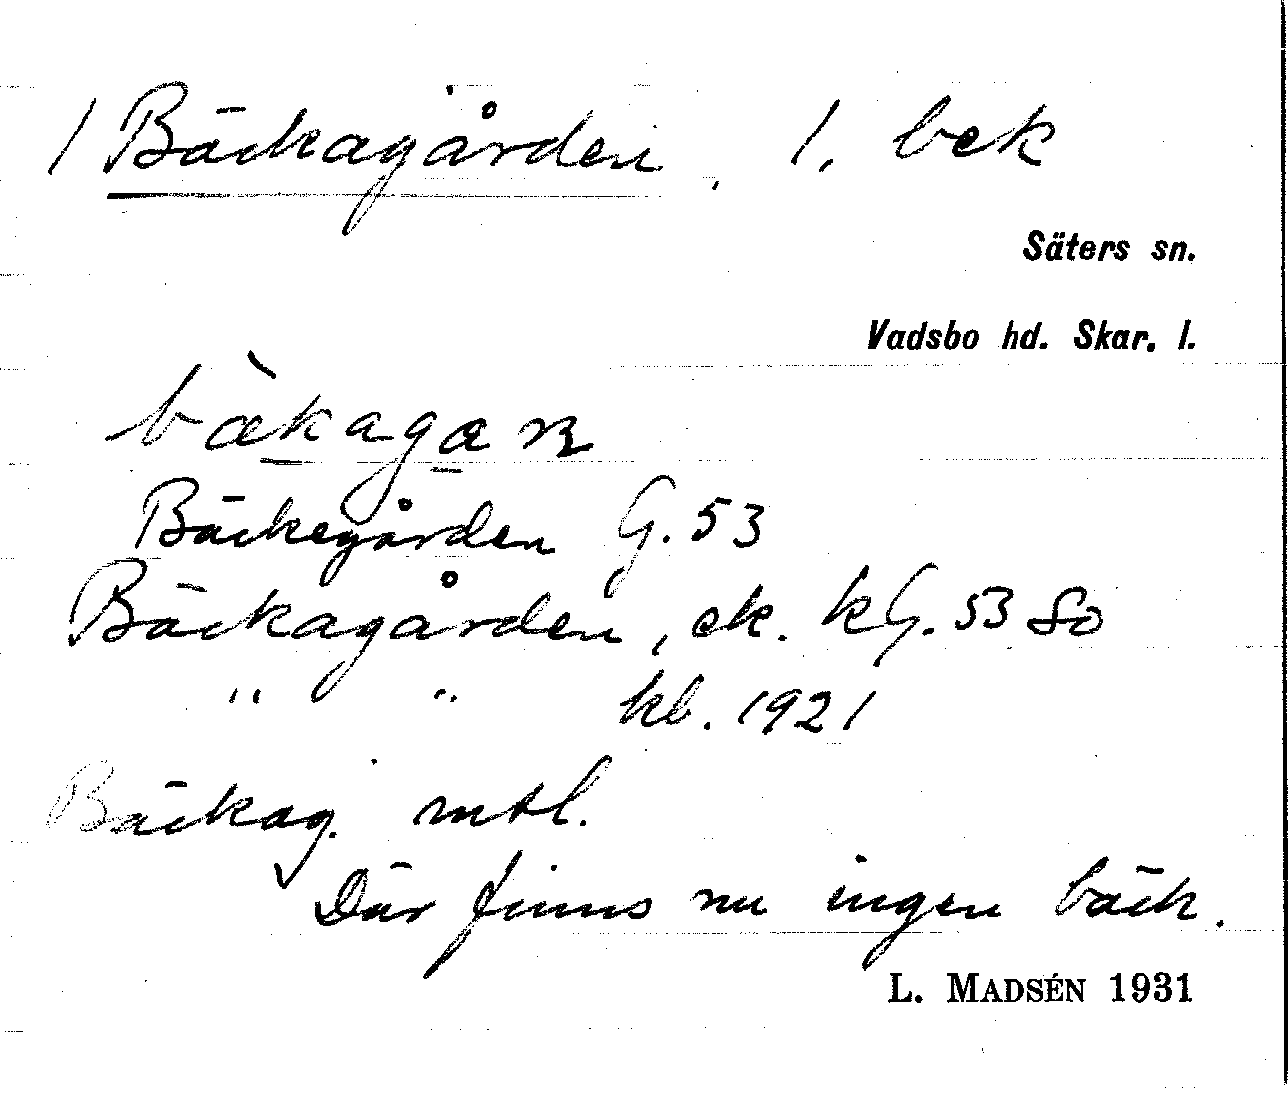 1 Bäckagården, 1. bek
Säters sn.
Vadsbo hd. Skar. l.
bækagaɳ
Bäckegården G. 53
Bäckagården, ek. kG. 53 So
" " kb. 1921
Bäckag. mtl.
Där finns nu ingen bäck.
L. MADSÉN 1931